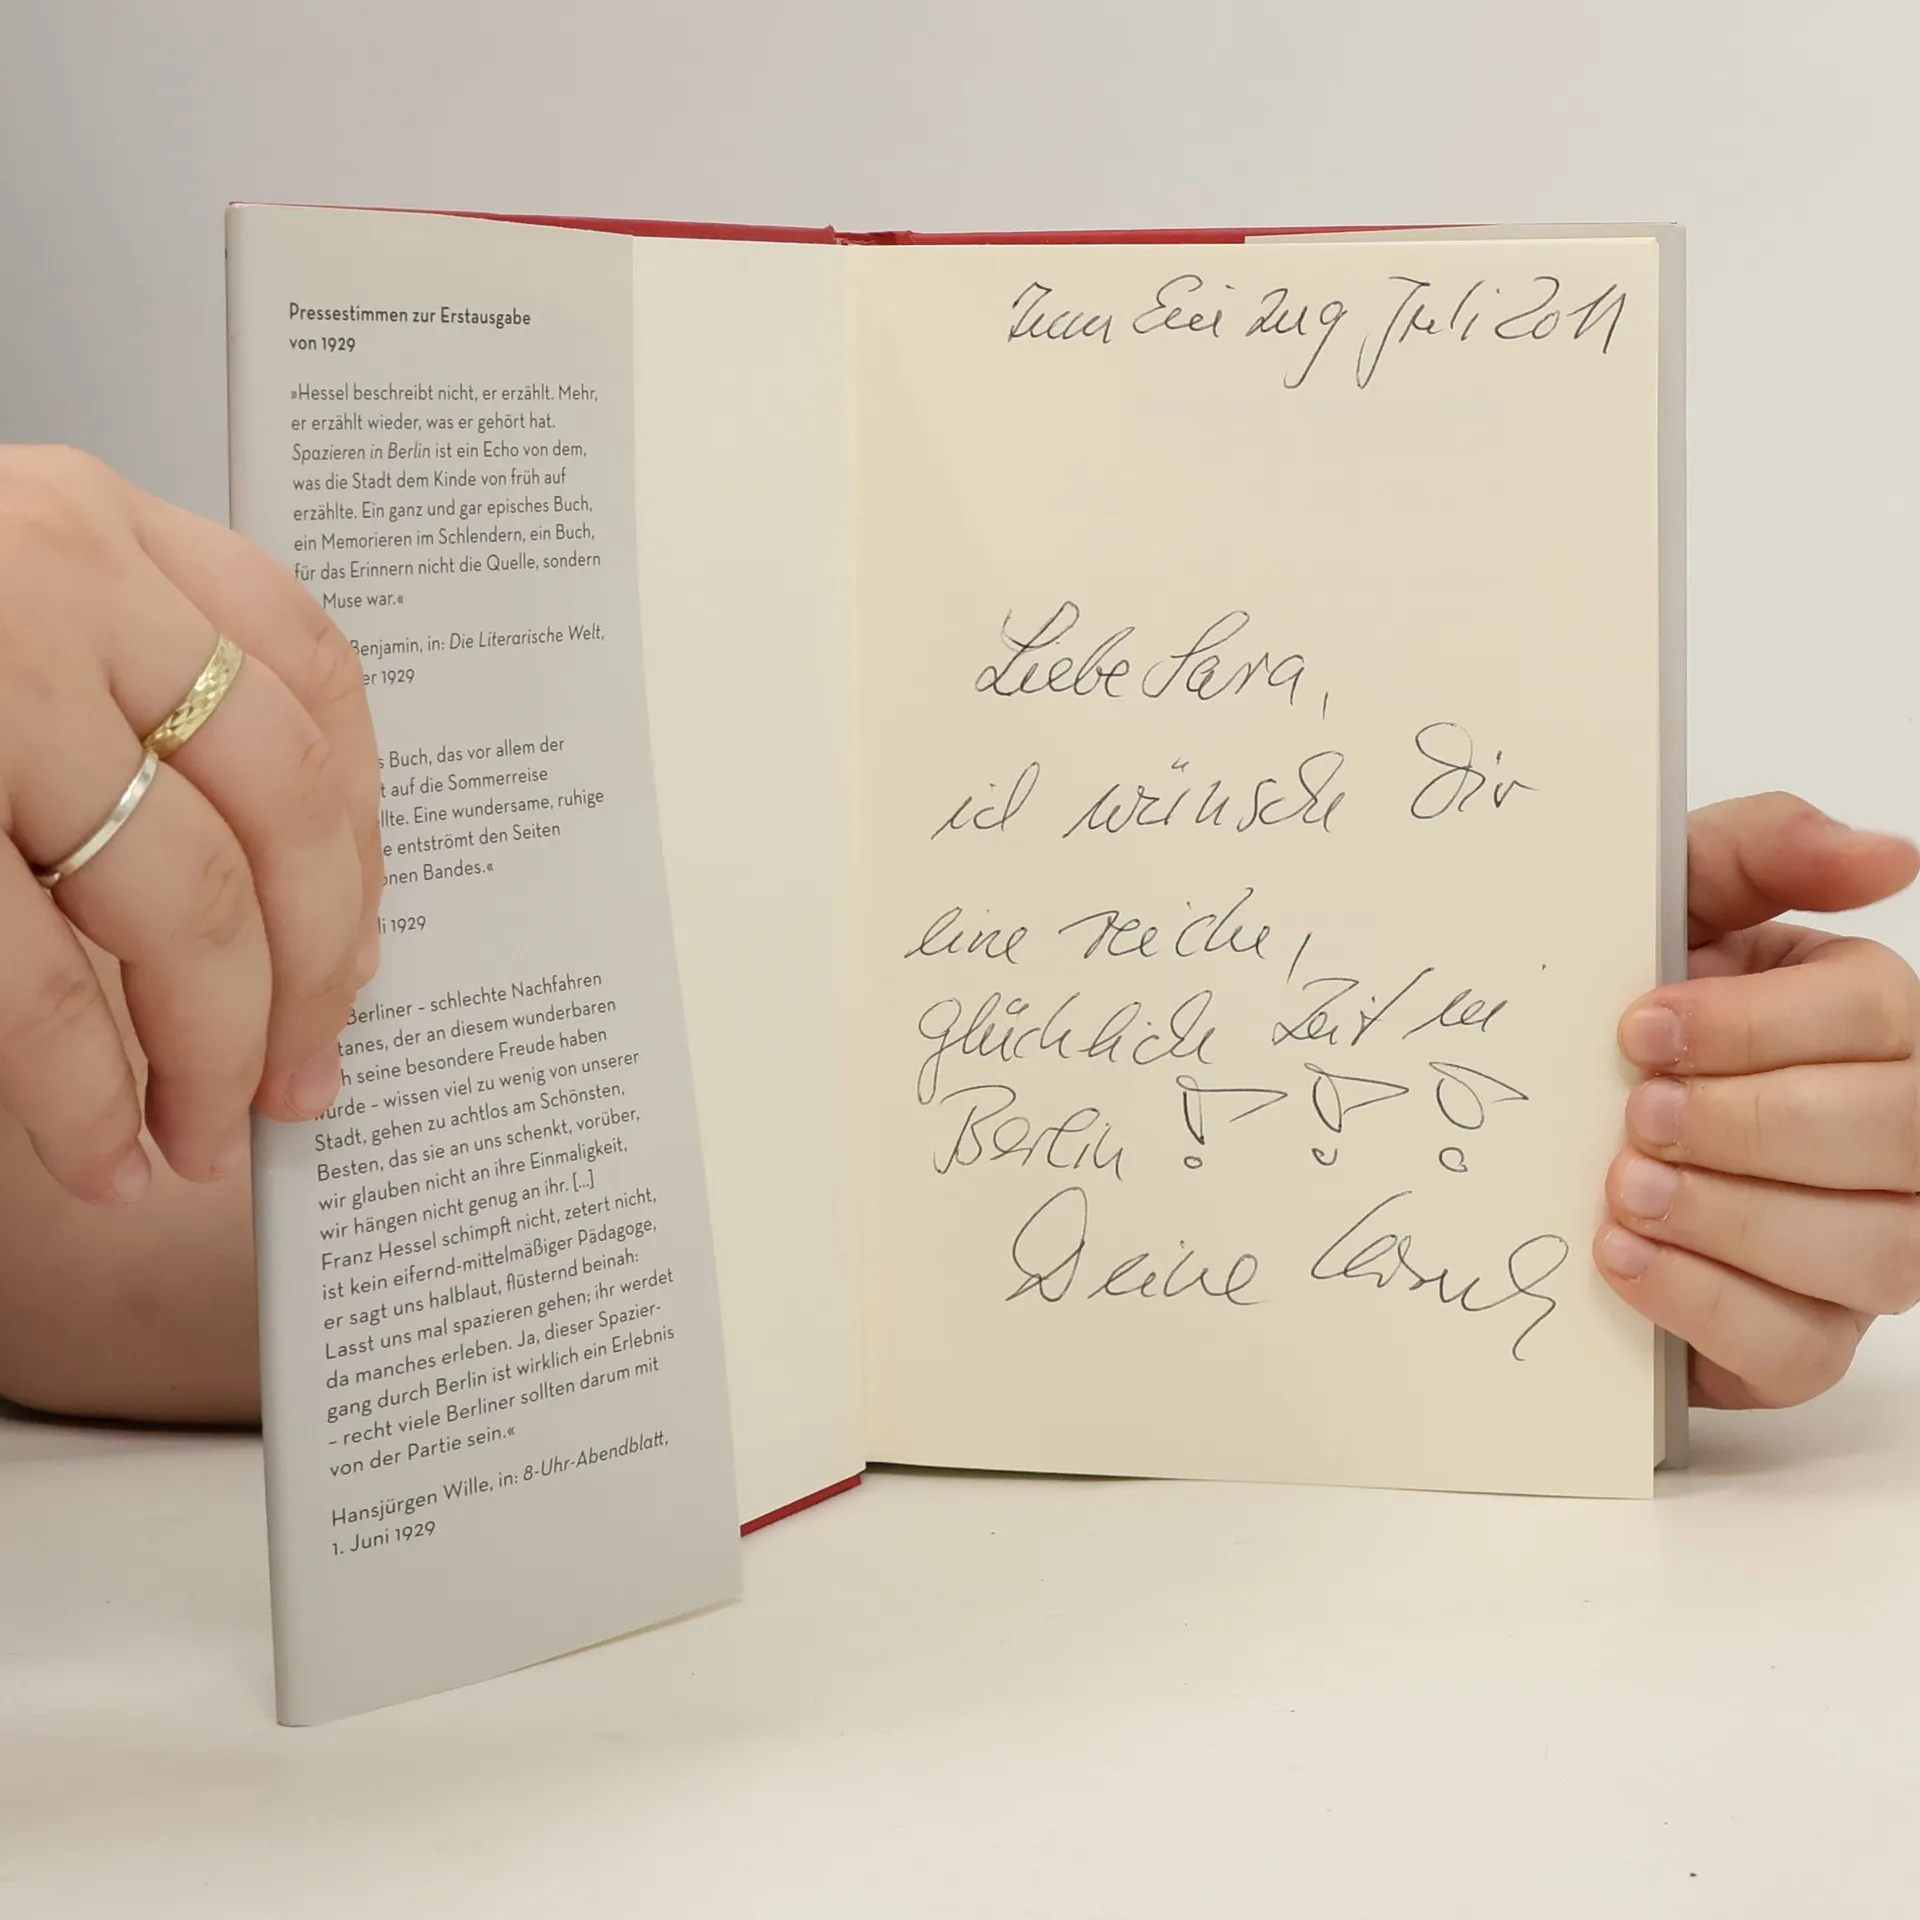 Pressestimmen zur Erstausgabe
von 1929
»Hessel beschreibt nicht, er erzählt. Mehr,
er erzählt wieder, was er gehört hat.
Spazieren in Berlin ist ein Echo von dem,
was die Stadt dem Kinde von früh auf
erzählte. Ein ganz und gar episches Buch,
ein Memorieren im Schlendern, ein Buch,
für das Erinnern nicht die Quelle, sondern
Muse war.«
Benjamin, in: Die Literarische Welt,
er 1929
s Buch, das vor allem der
t auf die Sommerreise
llte. Eine wundersame, ruhige
e entströmt den Seiten
önen Bandes.«
li 1929
Berliner – schlechte Nachfahren
tanes, der an diesem wunderbaren
h seine besondere Freude haben
würde – wissen viel zu wenig von unserer
Stadt, gehen zu achtlos am Schönsten,
Besten, das sie an uns schenkt, vorüber,
wir glauben nicht an ihre Einmaligkeit,
wir hängen nicht genug an ihr. [...]
Franz Hessel schimpft nicht, zetert nicht,
ist kein eifernd-mittelmäßiger Pädagoge,
er sagt uns halblaut, flüsternd beinah:
Lasst uns mal spazieren gehen; ihr werdet
da manches erleben. Ja, dieser Spazier-
gang durch Berlin ist wirklich ein Erlebnis
– recht viele Berliner sollten darum mit
von der Partie sein.«
Hansjürgen Wille, in: 8-Uhr-Abendblatt,
1. Juni 1929
Zum Einzug Juli 2011
Liebe Sara,
ich wünsche Dir
eine reiche,
glückliche Zeit in
Berlin !!!
Deine